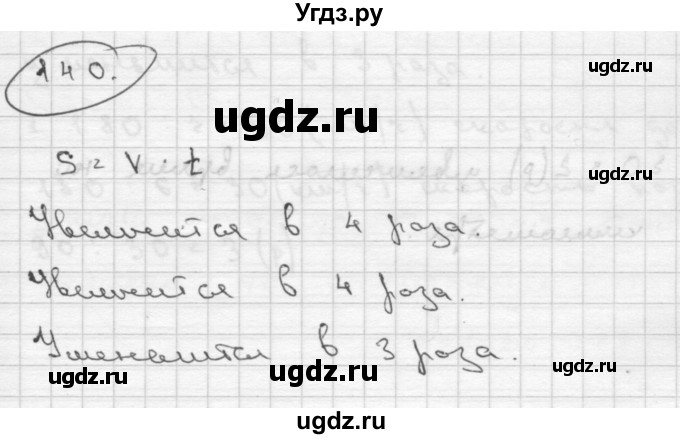 Угдз.ру
140.
ugdz.ru
ugdz.ru
S = V · t
ugdz.ru
Увеличится в 4 раза.
Увеличится в 4 раза.
Уменьшится в 3 раза.
ugdz.ru
ugdz.ru
ugdz.ru
ugdz.ru